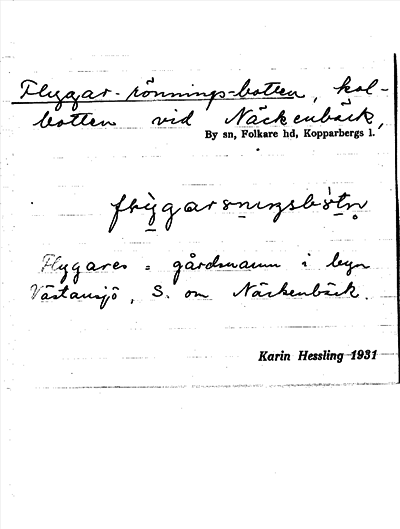 Flyggar-rönnings-botten, kol-
botten vid Näckenbäck,
By sn, Folkare hd, Kopparbergs l.
Flygares = gårdsnamn i byn
Västansjö, S. om Näckenbäck.
Karin Hessling 1931